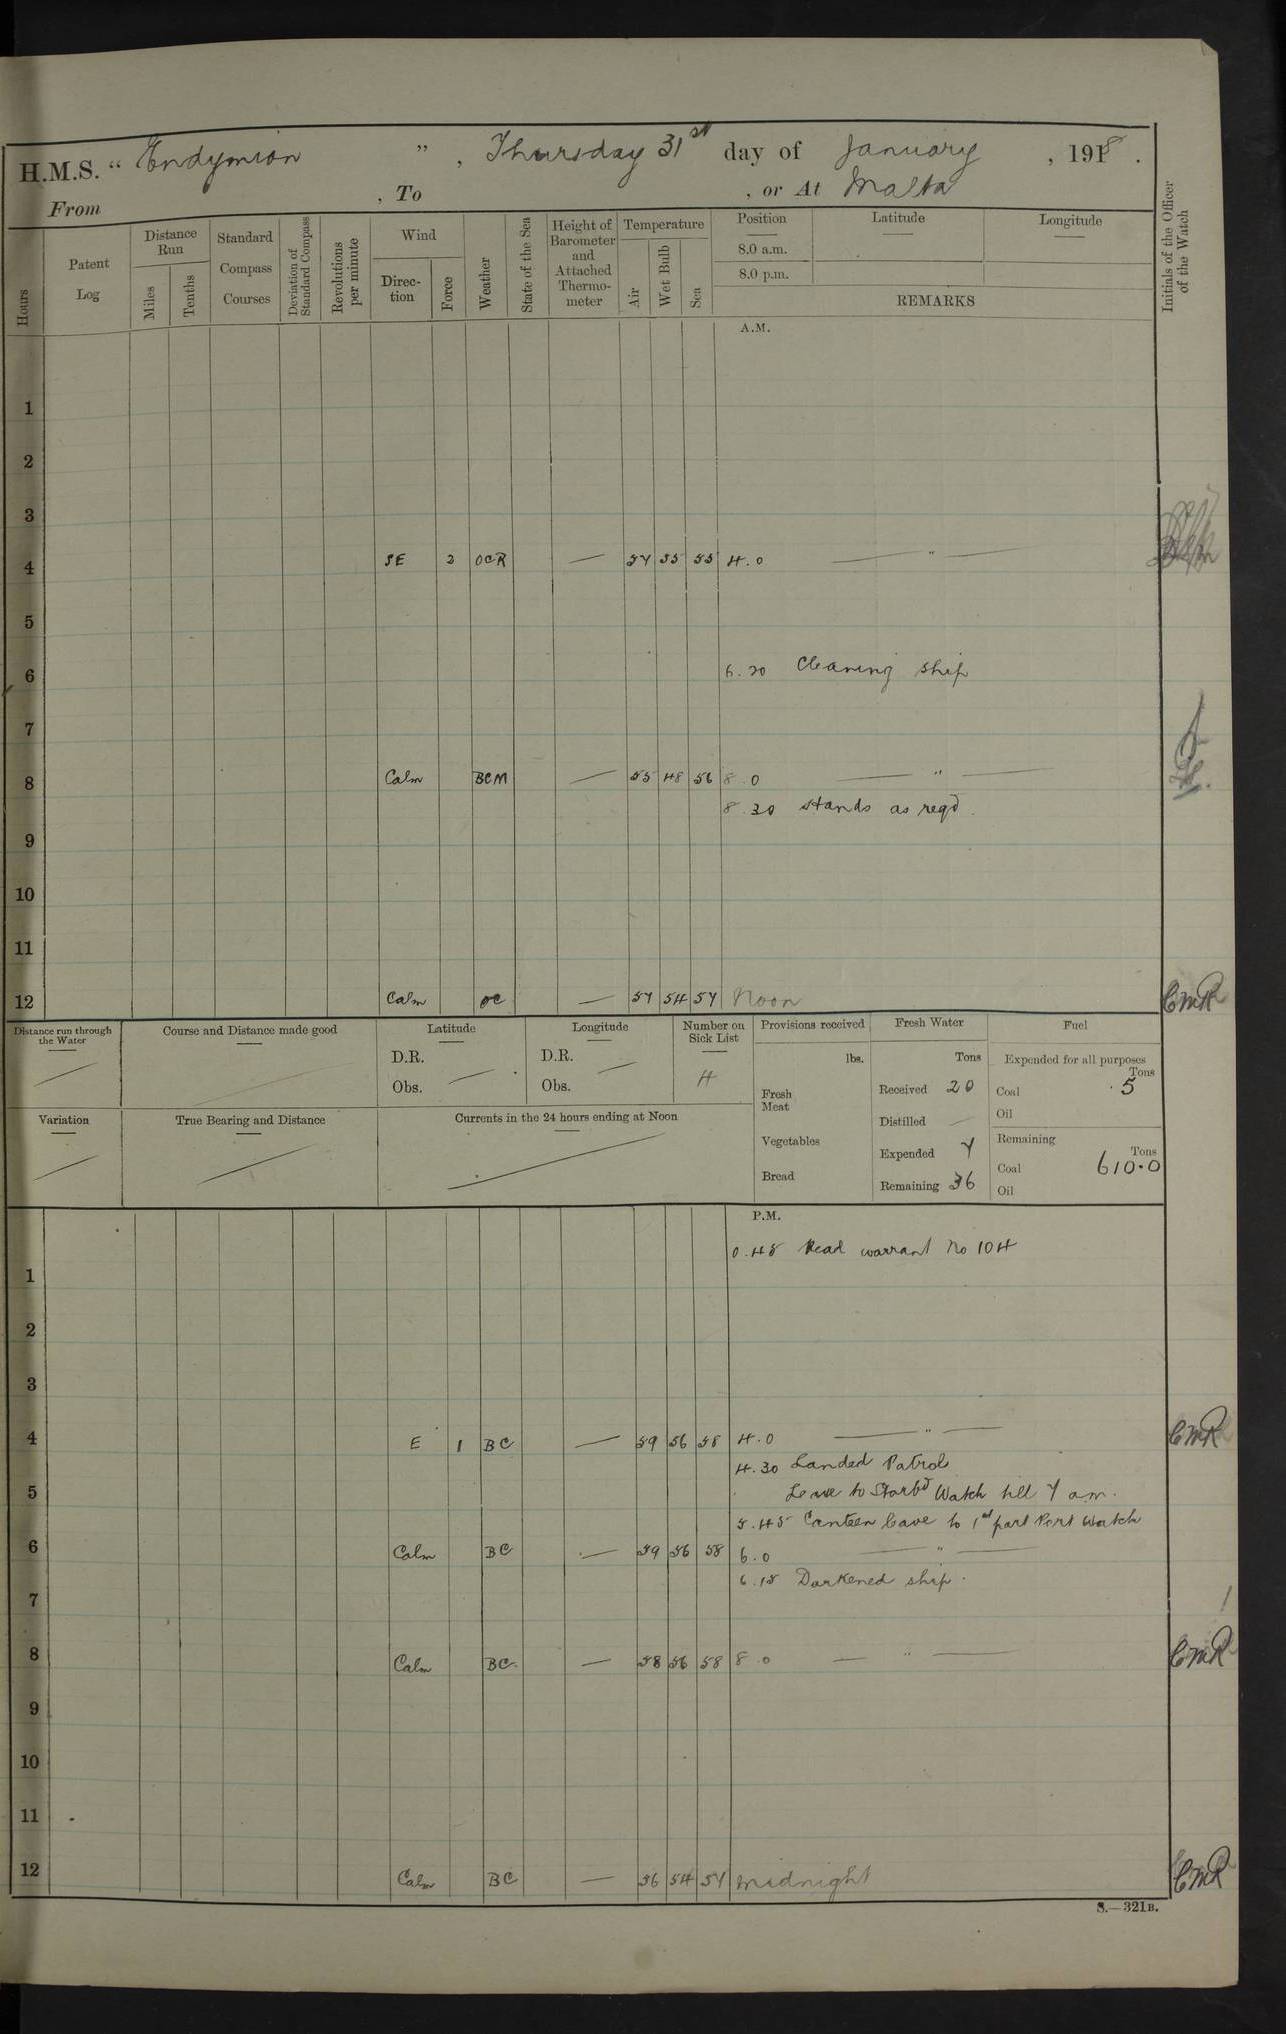 H.M.S. "Endymion", Thursday 31st day of January, 1918.
From , To , or At Malta
Hours
Patent Log
Distance Run
Miles
Tenths
Standard Compass Courses
Deviation of Standard Compass
Revolutions per minute
Wind
Direction
Force
Weather
State of the Sea
Height of Barometer and Attached Thermometer
Temperature
Air
Wet Bulb
Sea
Position
8.0 a.m.
8.0 p.m.
Latitude
Longitude
REMARKS
Initials of the Officer of the Watch
A.M.
1
2
3
4 SE 2 OCR — 57 55 55 4.0 — " —
5
6 6.20 Cleaning ship
7
8 Calm BCM — 55 48 56 8.0 — " —
8.30 Hands as reqd.
9
10
11
12 Calm OC — 57 54 57 Noon CMR
Distance run through the Water
Course and Distance made good
Latitude
D.R.
Obs. —
Longitude
D.R. —
Obs.
Number on Sick List
4
Provisions received
lbs.
Fresh Meat
Vegetables
Bread
Fresh Water
Tons
Received 20
Distilled —
Expended 7
Remaining 36
Fuel
Expended for all purposes
Tons
Coal 5
Oil
Remaining
Tons
Coal 610.0
Oil
Variation
True Bearing and Distance
Currents in the 24 hours ending at Noon
P.M.
0.45 Read warrant No 104
1
2
3
4 E 1 BC — 59 56 58 4.0 — " — CMR
4.30 Landed Patrol
Leave to Starbd Watch till 7 am.
5
5.45 Canteen leave to 1st part Port Watch
6 Calm BC — 59 56 58 6.0 — " —
6.15 Darkened ship.
7
8 Calm BC — 58 56 58 8.0 — " — CMR
9
10
11
12 Calm BC — 56 54 57 Midnight CMR
S.—321B.